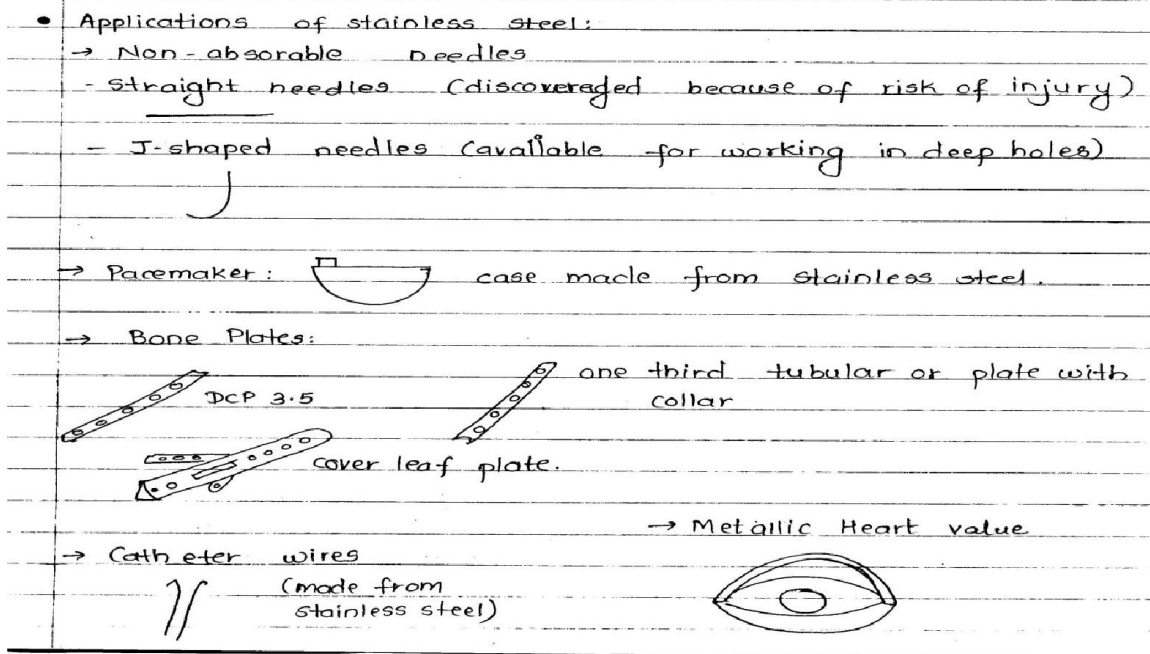 • Applications of stainless steel:
→ Non-absorable needles
- straight needles (discoveraged because of risk of injury)
- J-shaped needles (available for working in deep holes)
→ Pacemaker: case made from stainless steel.
→ Bone Plates:
DCP 3.5
one third tubular or plate with
collar
cover leaf plate.
→ Metallic Heart value
→ Catheter wires
(made from
stainless steel)